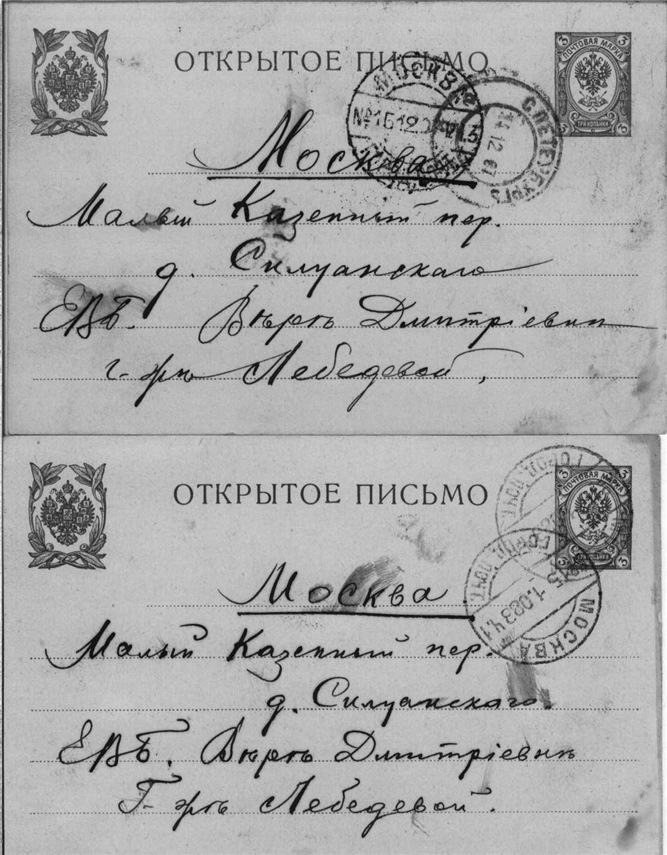 ОТКРЫТОЕ ПИСЬМО
ПОЧТОВАЯ МАРКА
3 3
ТРИ КОПѢЙКИ
МОСКВА
С.ПЕТЕРБУРГЪ
Москва
Малый Казенный пер.
д. Силуанскаго
ЕВБ. Вѣрѣ Дмитріевнѣ
г-жѣ Лебедевой,
ОТКРЫТОЕ ПИСЬМО
ПОЧТОВАЯ МАРКА
3 3
ГОРОД. ПОЧТ.
МОСКВА
Москва
Малый Казенный пер.
д. Силуанскаго.
ЕВБ. Вѣрѣ Дмитріевнѣ
Г-жѣ Лебедевой.